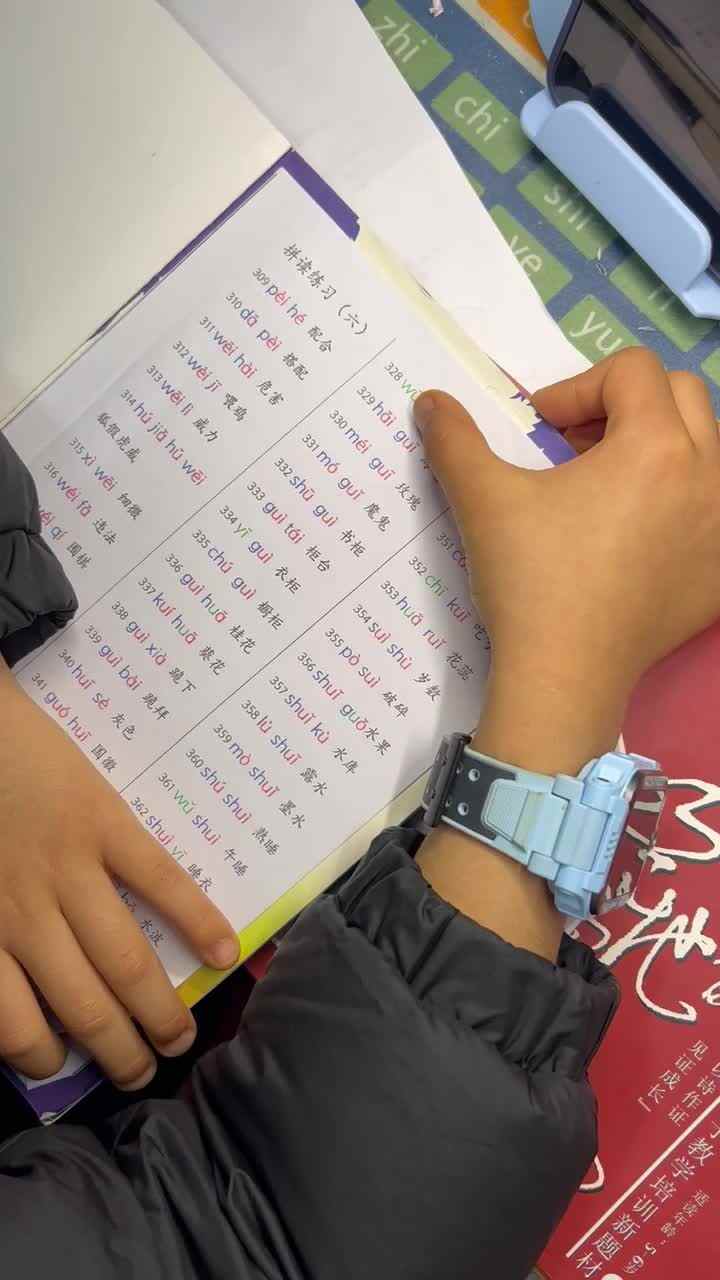 拼读练习（六）
309 pèi hé 配合
310 dā pèi 搭配
311 wēi hài 危害
312 wèi jī 喂鸡
313 wēi lì 威力
314 hú jiǎ hǔ wēi
狐假虎威
315 xì wēi 细微
316 wéi fǎ 违法
wéi qí 围棋
328
329 hǎi guī
330 méi guī 玫瑰
331 mó guǐ 魔鬼
332 shū guì 书柜
333 guì tái 柜台
334 yī guì 衣柜
335 chú guì 橱柜
336 guì huā 桂花
337 kuí huā 葵花
338 guì xià 跪下
339 guì bài 跪拜
340 huī sè 灰色
341 guó huī 国徽
351
352 chī kuī 吃亏
353 huā ruǐ 花蕊
354 suì shù 岁数
355 pò suì 破碎
356 shuǐ guǒ 水果
357 shuǐ kù 水库
358 lù shuǐ 露水
359 mò shuǐ 墨水
360 shú shuì 熟睡
361 wǔ shuì 午睡
362 shuì yī 睡衣
水波
zhi
chi
shi
ye
yu
见证成长』
诗作证
教学培训新题材
适读年龄：